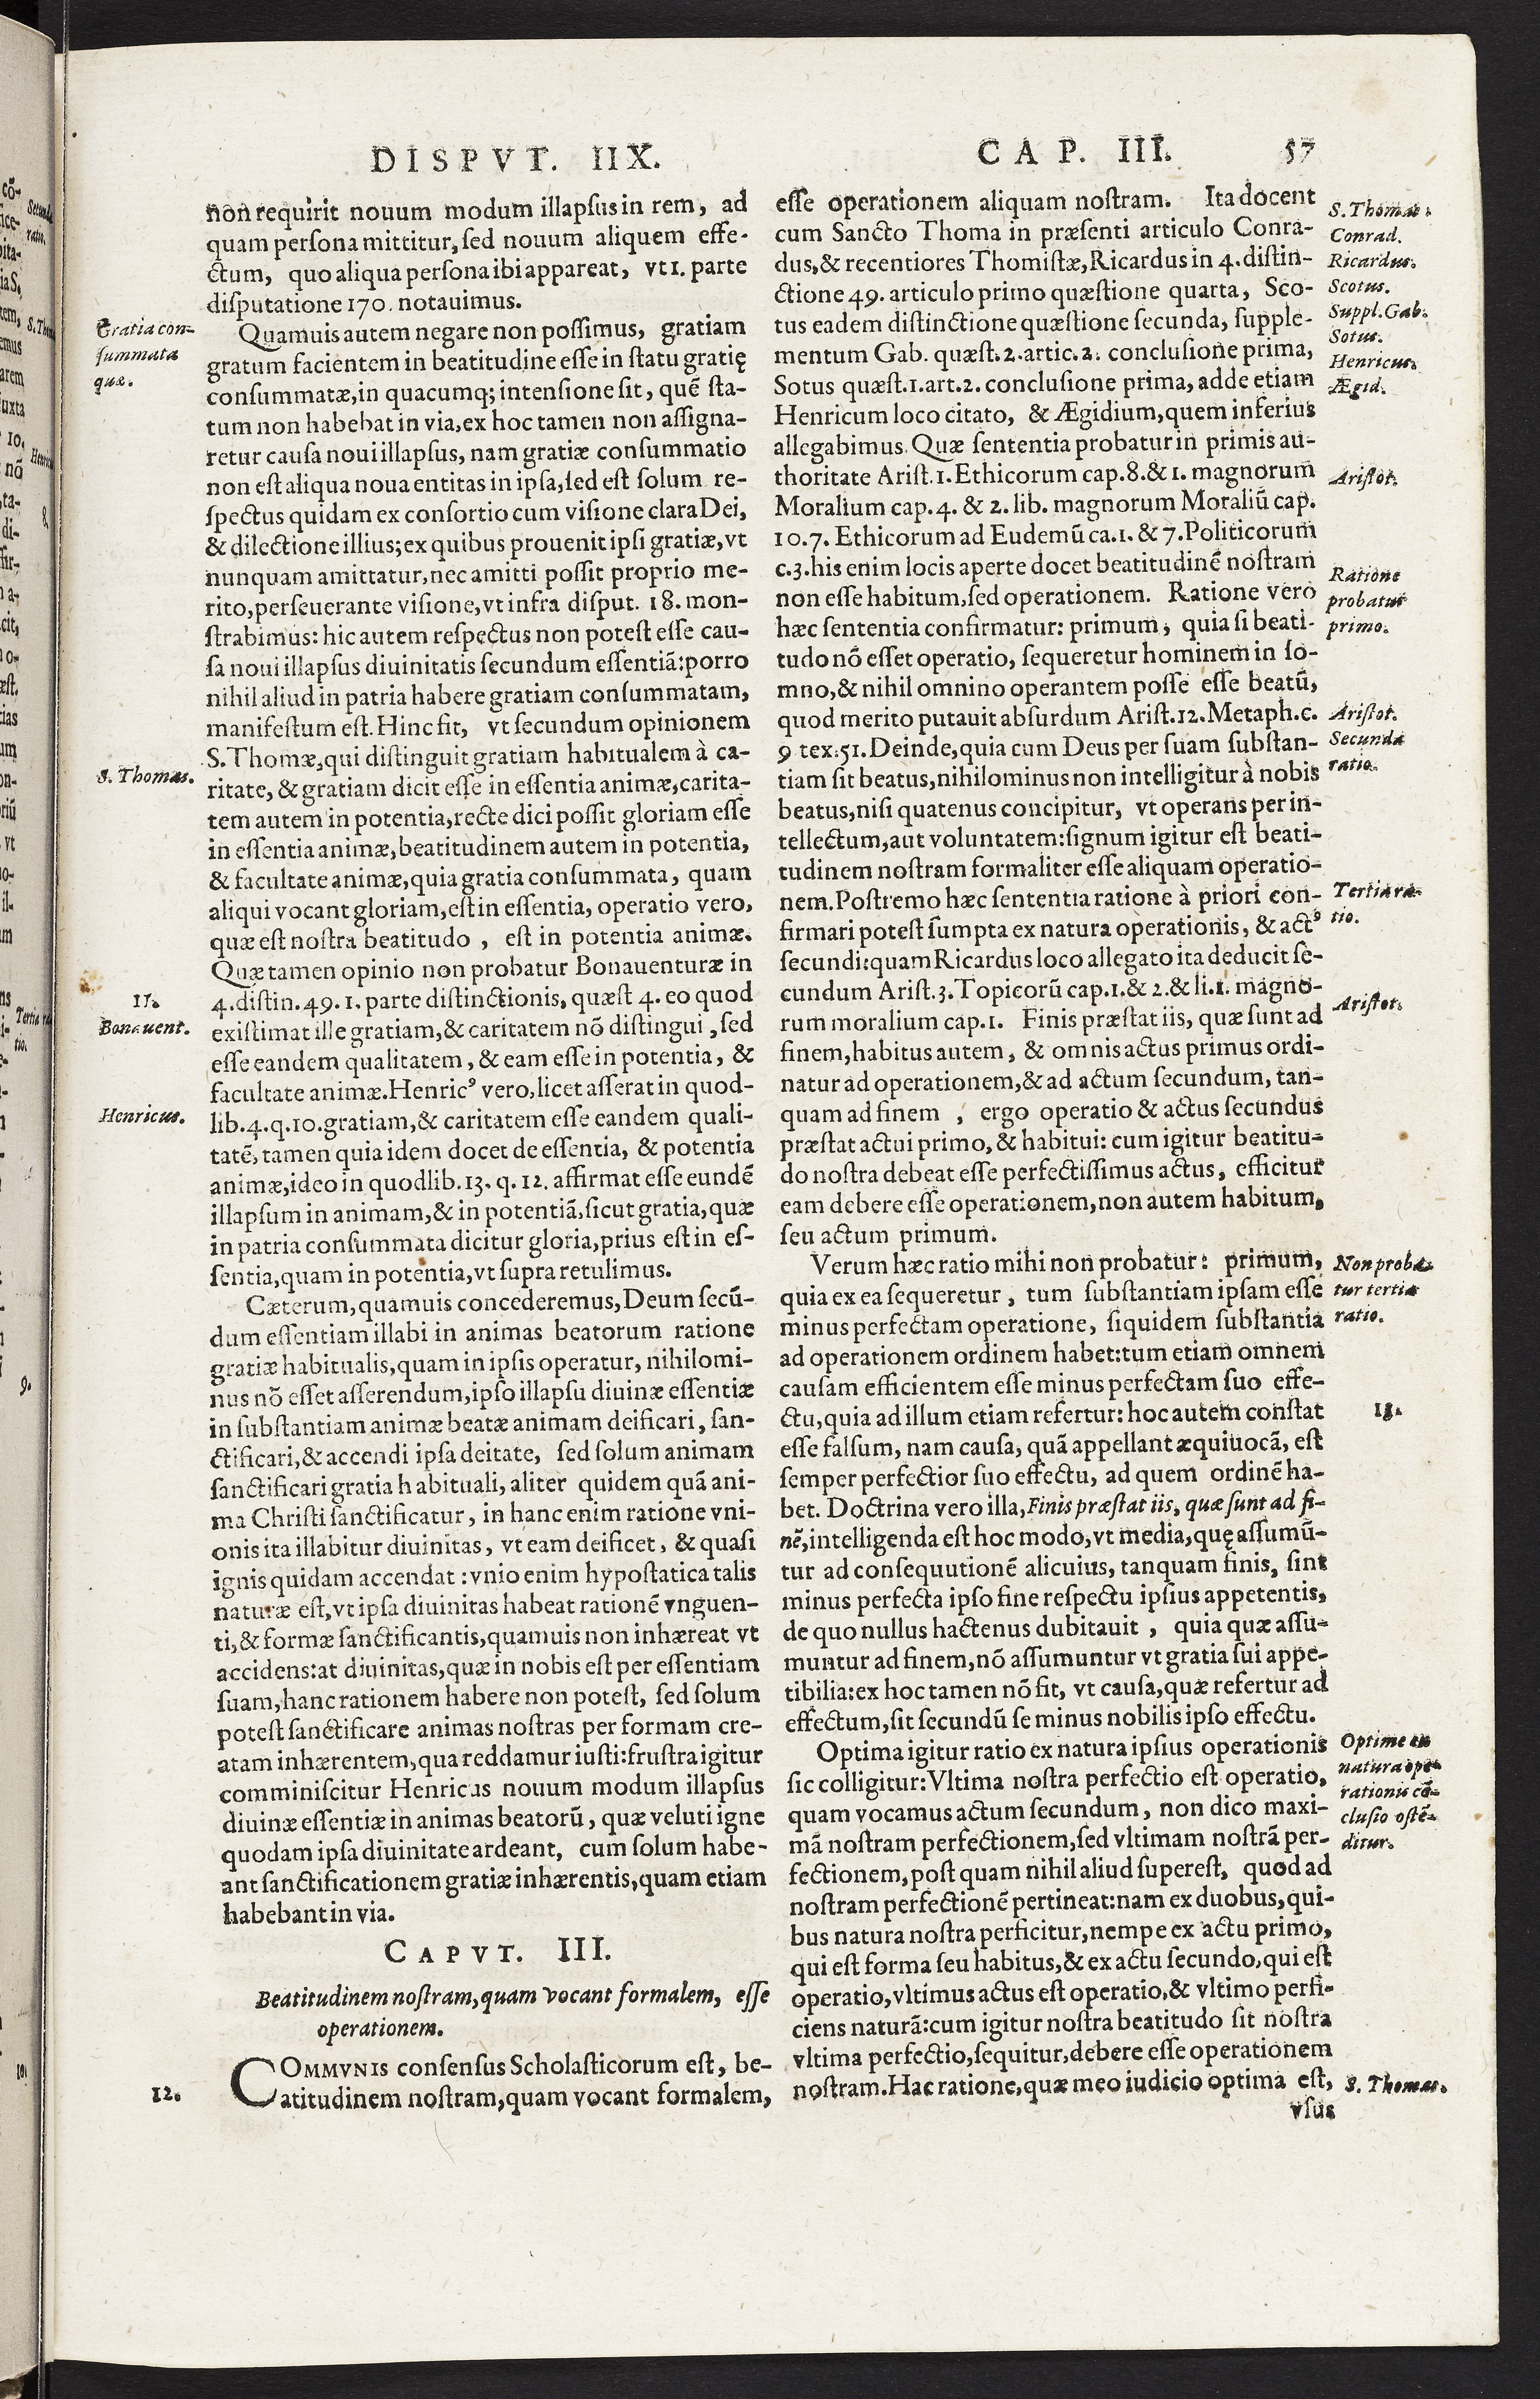 DISPVT. IIX.
non requirit nouum modum illapsus in rem, ad
quam persona mittitur, sed nouum aliquem effe-
ctum, quo aliqua persona ibi appareat, vt 1. parte
disputatione 170. notauimus.
Gratia con-
summata
quæ.
Quamuis autem negare non possimus, gratiam
gratum facientem in beatitudine esse in statu gratię
consummatæ, in quacumq; intensione sit, quē sta-
tum non habebat in via, ex hoc tamen non assigna-
retur causa noui illapsus, nam gratiæ consummatio
non est aliqua noua entitas in ipsa, sed est solum re-
spectus quidam ex consortio cum visione clara Dei,
& dilectione illius; ex quibus prouenit ipsi gratiæ, vt
nunquam amittatur, nec amitti possit proprio me-
rito, perseuerante visione, vt infra disput. 18. mon-
strabimus: hic autem respectus non potest esse cau-
sa noui illapsus diuinitatis secundum essentiā: porro
nihil aliud in patria habere gratiam consummatam,
manifestum est. Hinc fit, vt secundum opinionem
S. Thomæ, qui distinguit gratiam habitualem à ca-
S. Thomas.
ritate, & gratiam dicit esse in essentia animæ, carita-
tem autem in potentia, recte dici possit gloriam esse
in essentia animæ, beatitudinem autem in potentia,
& facultate animæ, quia gratia consummata, quam
aliqui vocant gloriam, est in essentia, operatio vero,
quæ est nostra beatitudo, est in potentia animæ.
Quæ tamen opinio non probatur Bonauenturæ in
11.
4. distin. 49. 1. parte distinctionis, quæst 4. eo quod
Bonauent.
existimat ille gratiam, & caritatem nō distingui, sed
esse eandem qualitatem, & eam esse in potentia, &
facultate animæ. Henricꝰ vero, licet asserat in quod-
Henricus.
lib. 4. q. 10. gratiam, & caritatem esse eandem quali-
tatē, tamen quia idem docet de essentia, & potentia
animæ, ideo in quodlib. 13. q. 12. affirmat esse eundē
illapsum in animam, & in potentiā, sicut gratia, quæ
in patria consummata dicitur gloria, prius est in es-
sentia, quam in potentia, vt supra retulimus.
Cæterum, quamuis concederemus, Deum secū-
dum essentiam illabi in animas beatorum ratione
gratiæ habitualis, quam in ipsis operatur, nihilomi-
nus nō esset asserendum, ipso illapsu diuinæ essentiæ
in substantiam animæ beatæ animam deificari, san-
ctificari, & accendi ipsa deitate, sed solum animam
sanctificari gratia habituali, aliter quidem quā ani-
ma Christi sanctificatur, in hanc enim ratione vni-
onis ita illabitur diuinitas, vt eam deificet, & quasi
ignis quidam accendat: vnio enim hypostatica talis
naturæ est, vt ipsa diuinitas habeat rationē vnguen-
ti, & formæ sanctificantis, quamuis non inhæreat vt
accidens: at diuinitas, quæ in nobis est per essentiam
suam, hanc rationem habere non potest, sed solum
potest sanctificare animas nostras per formam cre-
atam inhærentem, qua reddamur iusti: frustra igitur
comminiscitur Henricus nouum modum illapsus
diuinæ essentiæ in animas beatorū, quæ veluti igne
quodam ipsa diuinitate ardeant, cum solum habe-
ant sanctificationem gratiæ inhærentis, quam etiam
habebant in via.
CAPVT. III.
Beatitudinem nostram, quam vocant formalem, esse
operationem.
COMMVNIS consensus Scholasticorum est, be-
12.
atitudinem nostram, quam vocant formalem,
CAP. III. 57
esse operationem aliquam nostram. Ita docent
cum Sancto Thoma in præsenti articulo Conra-
dus, & recentiores Thomistæ, Ricardus in 4. distin-
ctione 49. articulo primo quæstione quarta, Sco-
tus eadem distinctione quæstione secunda, supple-
mentum Gab. quæst. 2. artic. 2. conclusione prima,
Sotus quæst. 1. art. 2. conclusione prima, adde etiam
Henricum loco citato, & Ægidium, quem inferius
allegabimus. Quæ sententia probatur in primis au-
thoritate Arist. 1. Ethicorum cap. 8. & 1. magnorum
Moralium cap. 4. & 2. lib. magnorum Moraliū cap.
10. 7. Ethicorum ad Eudemū ca. 1. & 7. Politicorum
c. 3. his enim locis aperte docet beatitudinē nostram
non esse habitum, sed operationem. Ratione vero
hæc sententia confirmatur: primum, quia si beati-
tudo nō esset operatio, sequeretur hominem in so-
mno, & nihil omnino operantem posse esse beatū,
quod merito putauit absurdum Arist. 12. Metaph. c.
9 tex. 51. Deinde, quia cum Deus per suam substan-
tiam sit beatus, nihilominus non intelligitur à nobis
beatus, nisi quatenus concipitur, vt operans per in-
tellectum, aut voluntatem: signum igitur est beati-
tudinem nostram formaliter esse aliquam operatio-
nem. Postremo hæc sententia ratione à priori con-
firmari potest sumpta ex natura operationis, & actꝰ
secundi: quam Ricardus loco allegato ita deducit se-
cundum Arist. 3. Topicorū cap. 1. & 2. & li. 1. magno-
rum moralium cap. 1. Finis præstat iis, quæ sunt ad
finem, habitus autem, & omnis actus primus ordi-
natur ad operationem, & ad actum secundum, tan-
quam ad finem, ergo operatio & actus secundus
præstat actui primo, & habitui: cum igitur beatitu-
do nostra debeat esse perfectissimus actus, efficitur
eam debere esse operationem, non autem habitum,
seu actum primum.
Verum hæc ratio mihi non probatur: primum,
quia ex ea sequeretur, tum substantiam ipsam esse
minus perfectam operatione, siquidem substantia
ad operationem ordinem habet: tum etiam omnem
causam efficientem esse minus perfectam suo effe-
ctu, quia ad illum etiam refertur: hoc autem constat
esse falsum, nam causa, quā appellant æquiuocā, est
semper perfectior suo effectu, ad quem ordinē ha-
bet. Doctrina vero illa, Finis præstat iis, quæ sunt ad fi-
nē, intelligenda est hoc modo, vt media, quę assumū-
tur ad consequutionē alicuius, tanquam finis, sint
minus perfecta ipso fine respectu ipsius appetentis,
de quo nullus hactenus dubitauit, quia quæ assu-
muntur ad finem, nō assumuntur vt gratia sui appe-
tibilia: ex hoc tamen nō fit, vt causa, quæ refertur ad
effectum, sit secundū se minus nobilis ipso effectu.
Optima igitur ratio ex natura ipsius operationis
sic colligitur: Vltima nostra perfectio est operatio,
quam vocamus actum secundum, non dico maxi-
mā nostram perfectionem, sed vltimam nostrā per-
fectionem, post quam nihil aliud superest, quod ad
nostram perfectionē pertineat: nam ex duobus, qui-
bus natura nostra perficitur, nempe ex actu primo,
qui est forma seu habitus, & ex actu secundo, qui est
operatio, vltimus actus est operatio, & vltimo perfi-
ciens naturā: cum igitur nostra beatitudo sit nostra
vltima perfectio, sequitur, debere esse operationem
nostram. Hac ratione, quæ meo iudicio optima est,
vsus
S. Thomas.
Conrad.
Ricardus.
Scotus.
Suppl. Gab.
Sotus.
Henricus.
Ægid.
Aristot.
Ratione
probatur
primo.
Aristot.
Secunda
ratio.
Tertia ra-
tio.
Aristot.
Non proba-
tur tertia
ratio.
13.
Optime ex
natura ope-
rationis cō-
clusio ostē-
ditur.
S. Thomas.